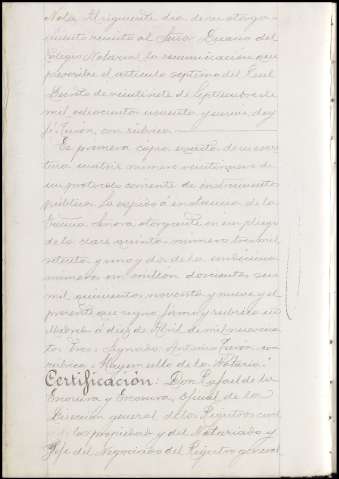 Nota. Al siguiente dia de su otorga-
miento remito al Señor Decano del
Colegio Notarial la comunicacion que
previene el artículo septimo del Real
Decreto de veintisiete de Septiembre de
mil ochocientos noventa y nueve, doy
fé. Turón, con rúbrica.
Es primera copia exacta de su escri-
tura matriz número veintinueve de
mi protocolo corriente de instrumentos
públicos. La expido á instancia de la
Excma Señora otorgante en un pliego
de la clase quinta número tres mil
setenta y uno y dos de la undécima
número un millon doscientos seis
mil quinientos noventa y nueve y el
presente que signo, firmo y rubrico en
Madrid á diez de Abril de mil novecien-
tos tres. Signado. Antonio Turón. con
rúbrica. Hay un sello de la Notaria.
Certificación. Don Rafael de la
Escosura y Escosura, Oficial de la
Direccion general de los Registros civil
de la propiedad y del Notariado y
Jefe del Negociado del Registro general